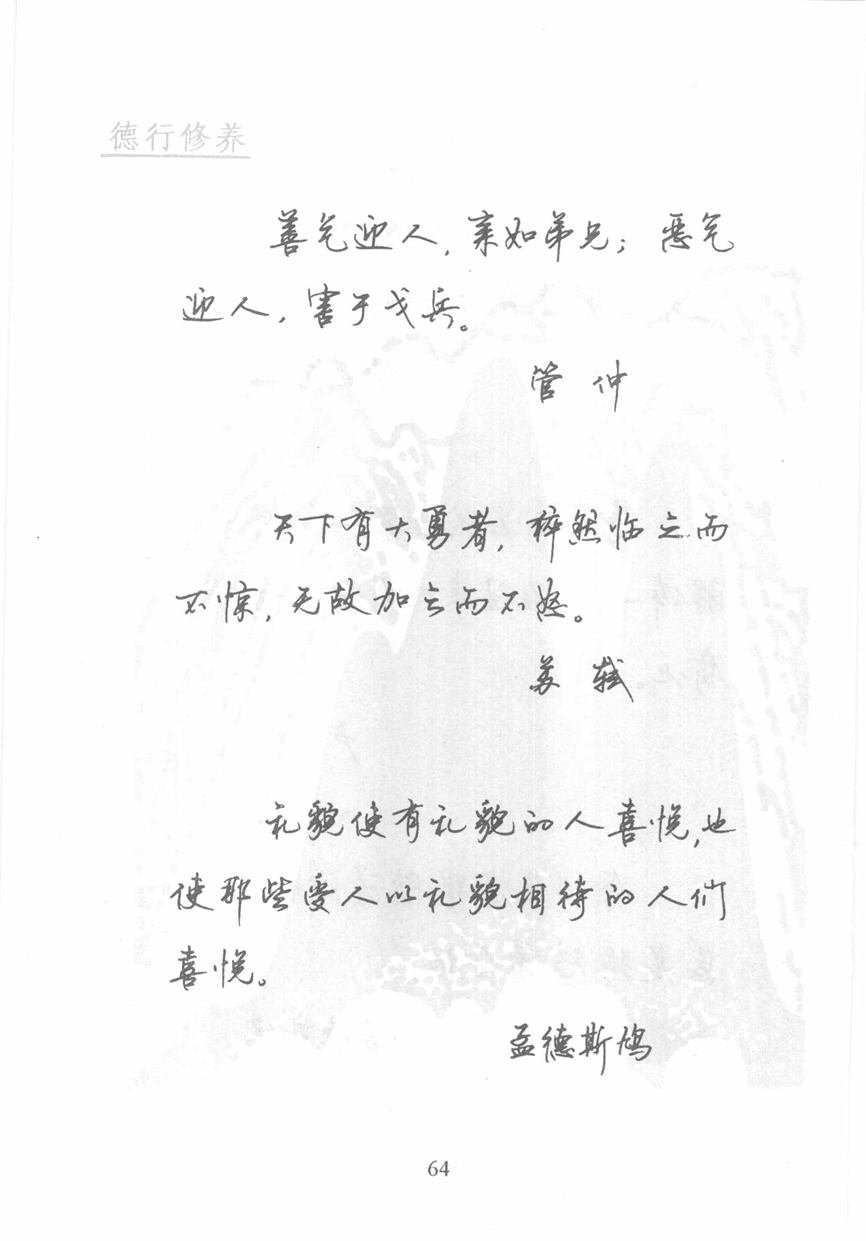 德行修养
善气迎人，亲如弟兄；恶气
迎人，害于戈兵。
管仲
天下有大勇者，猝然临之而
不惊，无故加之而不怒。
苏轼
礼貌使有礼貌的人喜悦，也
使那些受人以礼貌相待的人们
喜悦。
孟德斯鸠
64